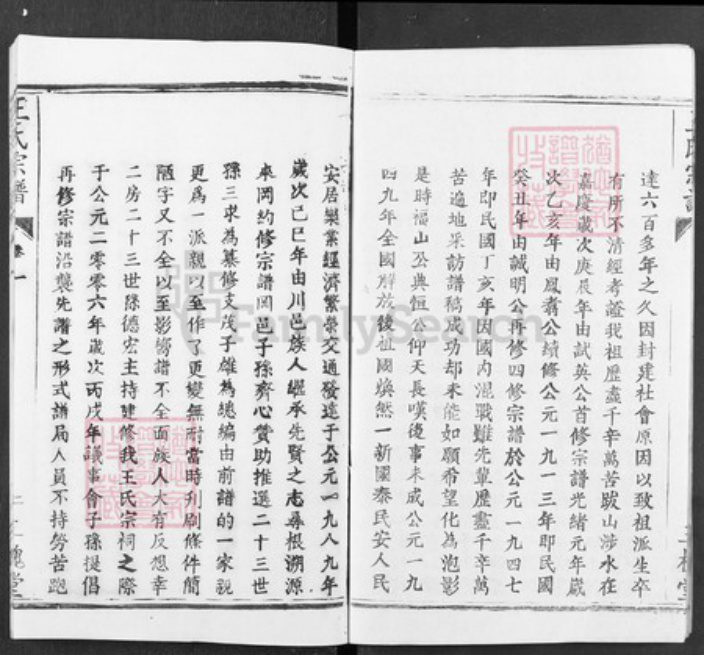 達六百多年之久因封建社會原因以致祖派生卒
有所不清經考證我祖歷盡千辛萬苦跋山涉水在
嘉慶歲次庚辰年由試英公首修宗譜光緒元年歲
次乙亥年由鳳翥公續修公元一九一三年即民國
癸丑年由誠明公再修四修宗譜於公元一九四七
年即民國丁亥年因國內混戰難先輩歷盡千辛萬
苦遍地采訪譜稿成功却未能如願希望化為泡影
是時福山公典恒公仰天長嘆後事未成公元一九
四九年全國解放後祖國煥然一新國泰民安人民
安居樂業經濟繁榮交通發達于公元一九八九年
歲次己巳年由川邑族人繼承先賢之志尋根溯源
來岡約修宗譜岡邑子孫齊心贊助推選二十三世
孫三求為纂修支茂子雄為總編由前譜的一家親
更爲一派親以至作了更變無耐當時刋刷條件簡
陋字又不全以至影嚮譜不全面族人大有反想幸
二房二十三世孫德宏主持建修我王氏宗祠之際
于公元二零零六年歲次丙戌年議事會子孫提倡
再修宗譜沿襲先譜之形式譜局人員不持勞苦跑
王氏宗譜
卷一
三槐堂
王氏宗譜
三槐堂
FamilySearch